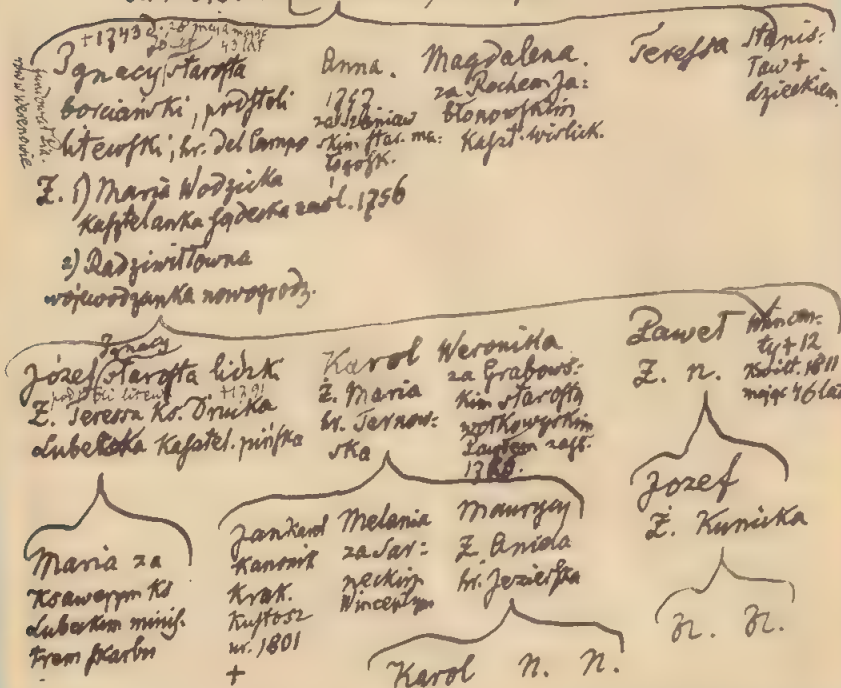 +1743 d. 28 maja mając
43 lat
Ignacy starosta
borciański, podstoli
litewski, hr. Del Campo
Ż. 1) Maria Wodzicka
kasztelanka sądecka zaśl. 1756
2) Radziwiłłowna
wojewodzanka nowogrodz.
Anna.
1757
skim star. ma:
łogosk.
Magdalena.
za Rochem Ja:
błonowskim
Kaszt. wislick.
Teressa
Stanis:
ław +
dzieckiem
Ignacy
Józef starosta lidzk.
podstoli litew. +1791
Ż. Teressa Ks. Drucka
Lubecka Kasztel. pińska
Karol
Ż. Maria
hr. Tarnow:
ska
Weronika
za Grabows:
kim starostą
wołkowyskim
Pawłem zaśl.
Paweł
Ż. n.
Wincen:
ty + 12
Kwiet. 1811
mając 46 lat
Maria za
Ksawerym Ks
Lubeckim minis.
trem skarbu
Jan Karol
Kanonik
Krak.
Kustosz
ur. 1801
+
Melania
za Sar:
neckim
Wincentym
Maurycy
Ż. Aniela
hr. Jezierska
Józef
Ż. Kunicka
Karol n. n.
N. N.